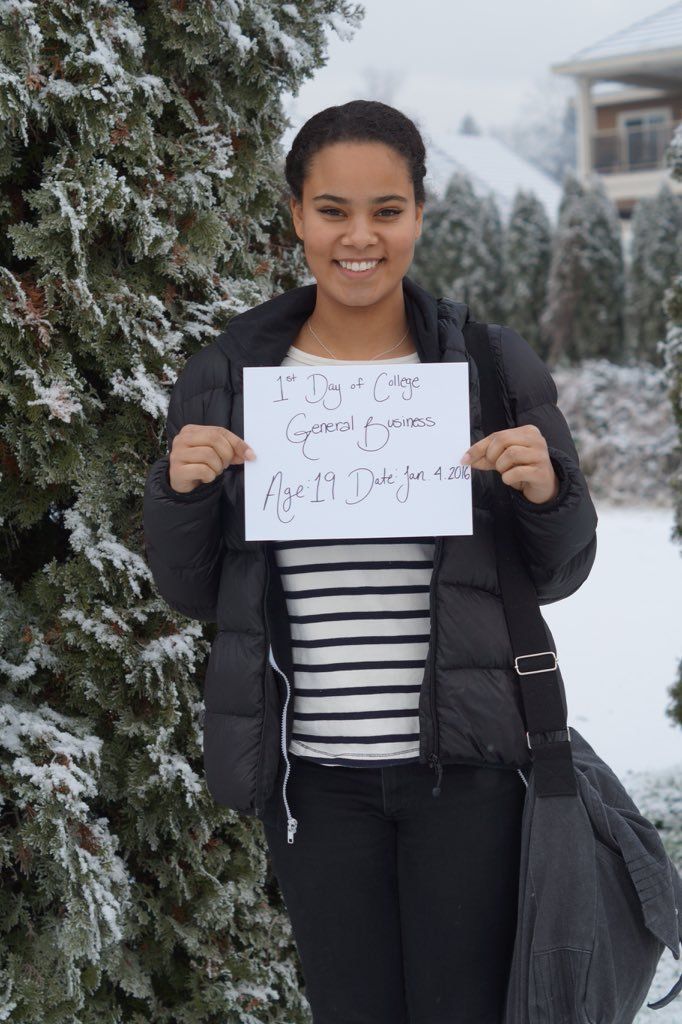 1st Day of College
General Business
Age: 19 Date: Jan. 4. 2016